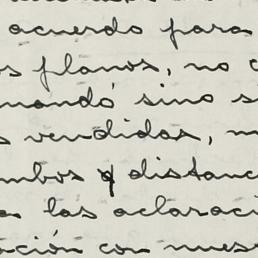 acuerdo para
os planos, no c
mandó sino s
s vendidas, m
mbos y distanc
las aclaraci
ación con nues